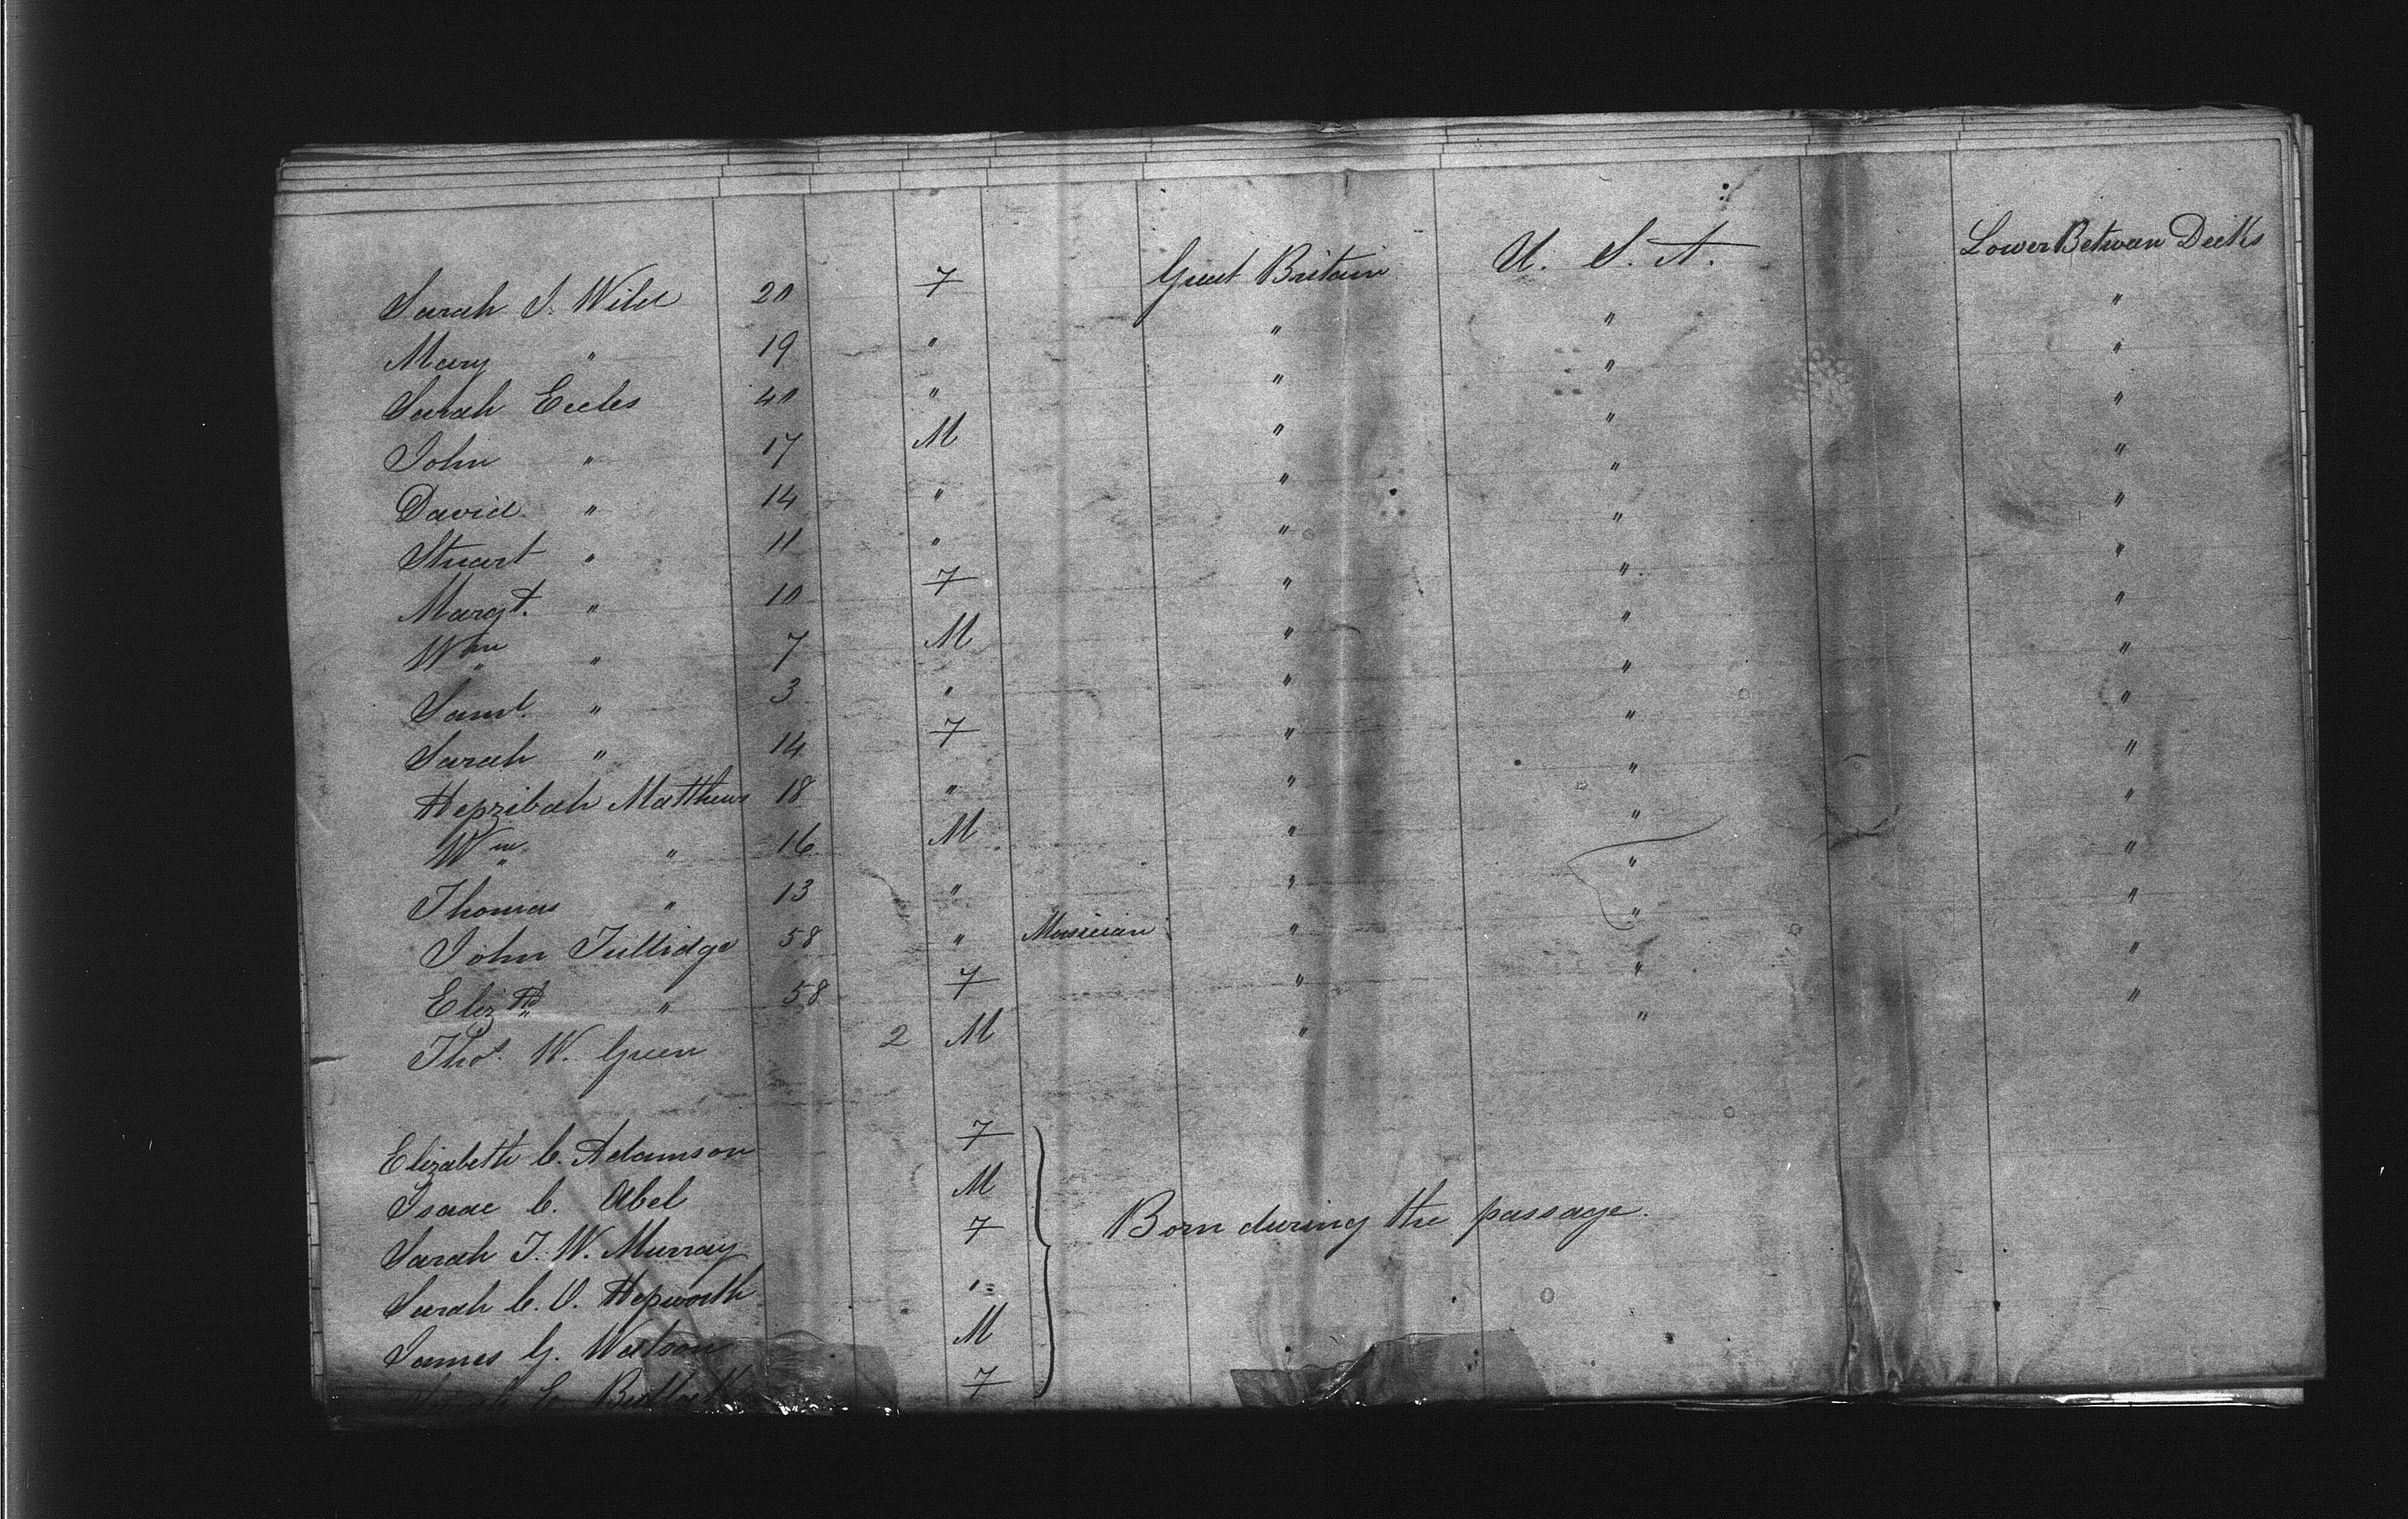 Sarah J. Wild 20 F Great Britain U. S. A. Lower Between Decks
Mary " 19 " " " "
Sarah Eccles 40 " " " "
John " 17 M " " "
David " 14 " " " "
Stuart " 11 " " " "
Margt. " 10 F " " "
Wm " 7 M " " "
Saml. " 3 " " " "
Sarah " 14 F " " "
Hepzibah Matthews 18 " " " "
Wm " 16 M " " "
Thomas " 13 " " " "
John Tullidge 58 " Musician " " "
Elizth " 58 F " " "
Thos. W. Green 2 M " " "
Elizabeth C. Adamson F
Isaac C. Abel M
Sarah J. W. Murray F
Born during the passage.
Sarah C. O. Hepworth "
James G. Watson M
F